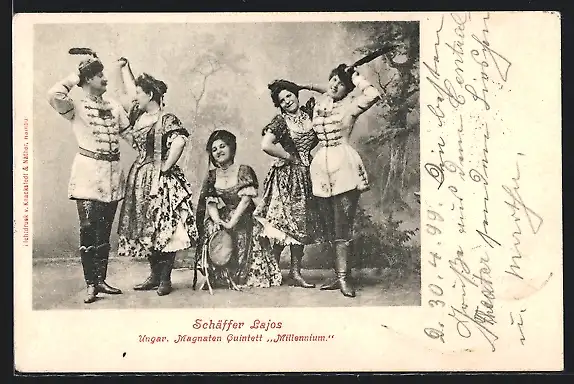 Schäffer Lajos
Ungar. Magnaten Quintett „Millennium."
Lichtdruck v. Knackstedt & Näther, Hamburg
D. 30.4.99. Die besten
Grüße aus dem Central
Theater senden
u Marthe.